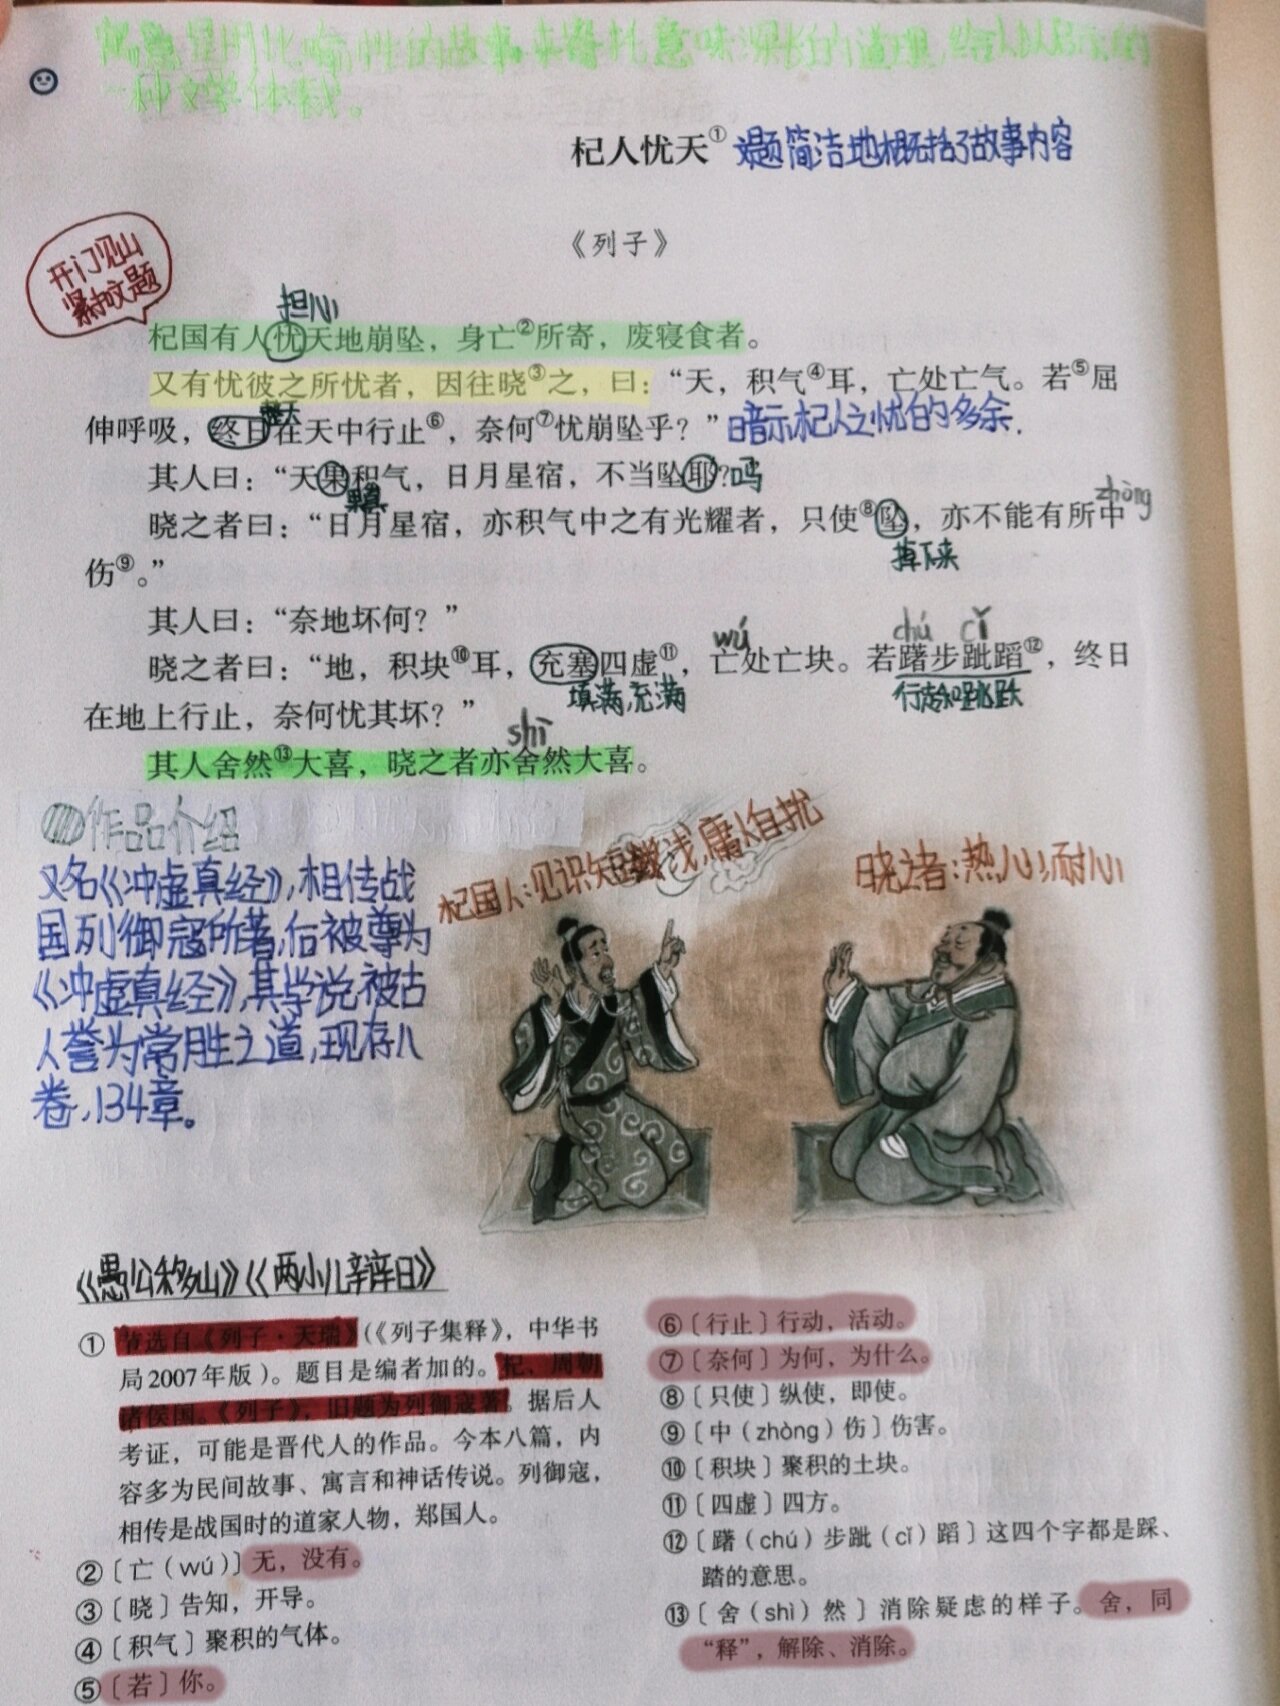 寓言是用比喻性的故事来寄托意味深长的道理,给人以启示的
一种文学体裁。
杞人忧天① 文题简洁地概括了故事内容
《列子》
开门见山
紧扣文题
担心
杞国有人忧天地崩坠，身亡②所寄，废寝食者。
又有忧彼之所忧者，因往晓③之，曰：“天，积气④耳，亡处亡气。若⑤屈
整天
伸呼吸，终日在天中行止⑥，奈何⑦忧崩坠乎？”暗示杞人之忧的多余.
其人曰：“天果积气，日月星宿，不当坠耶？”吗
果真
zhòng
晓之者曰：“日月星宿，亦积气中之有光耀者，只使⑧坠，亦不能有所中
掉下来
伤⑨。”
其人曰：“奈地坏何？”
wú chú cǐ
晓之者曰：“地，积块⑩耳，充塞四虚⑪，亡处亡块。若躇步跐蹈⑫，终日
填满,充满 行走和跳跃
在地上行止，奈何忧其坏？”
shì
其人舍然⑬大喜，晓之者亦舍然大喜。
作品介绍
又名《冲虚真经》,相传战
国列御寇所著,后被尊为
《冲虚真经》,其学说被古
人誉为常胜之道,现存八
卷,134章。
杞国人:见识短浅,庸人自扰
晓之者:热心,耐心
《愚公移山》《两小儿辩日》
① 节选自《列子·天瑞》（《列子集释》，中华书
局2007年版）。题目是编者加的。杞，周朝
诸侯国。《列子》，旧题为列御寇著。据后人
考证，可能是晋代人的作品。今本八篇，内
容多为民间故事、寓言和神话传说。列御寇，
相传是战国时的道家人物，郑国人。
②〔亡（wú）〕无，没有。
③〔晓〕告知，开导。
④〔积气〕聚积的气体。
⑤〔若〕你。
⑥〔行止〕行动，活动。
⑦〔奈何〕为何，为什么。
⑧〔只使〕纵使，即使。
⑨〔中（zhòng）伤〕伤害。
⑩〔积块〕聚积的土块。
⑪〔四虚〕四方。
⑫〔躇（chú）步跐（cǐ）蹈〕这四个字都是踩、
踏的意思。
⑬〔舍（shì）然〕消除疑虑的样子。舍，同
“释”，解除、消除。